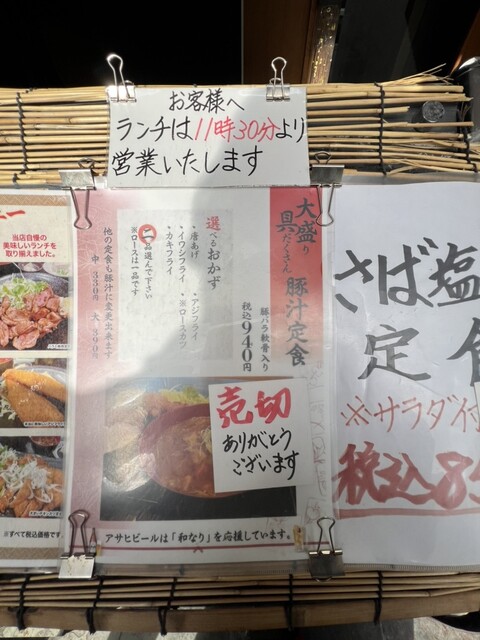 お客様へ
ランチは11時30分より
営業いたします
当店自慢の
美味しいランチを
取り揃えました。
※すべて税込価格です
大盛り
具だくさん 豚汁定食
豚バラ軟骨入り
税込940円
選べるおかず
・唐あげ ・アジフライ
・イワシフライ ・※ロースカツ
・カキフライ
二品選んで下さい
※ロースは一品です
他の定食も豚汁に変更出来ます
中 330円 大 390円
売切
ありがとう
ございます
アサヒビールは「和なり」を応援しています。
さば塩
定食
※サラダ付
税込85